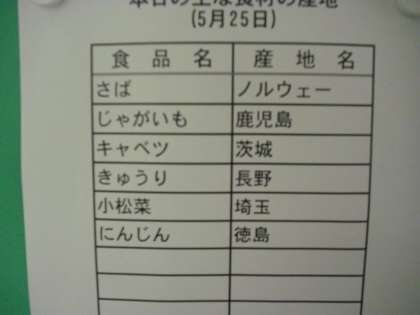 本日の主な食材の産地
(5月25日)
食品名 産地名
さば ノルウェー
じゃがいも 鹿児島
キャベツ 茨城
きゅうり 長野
小松菜 埼玉
にんじん 徳島